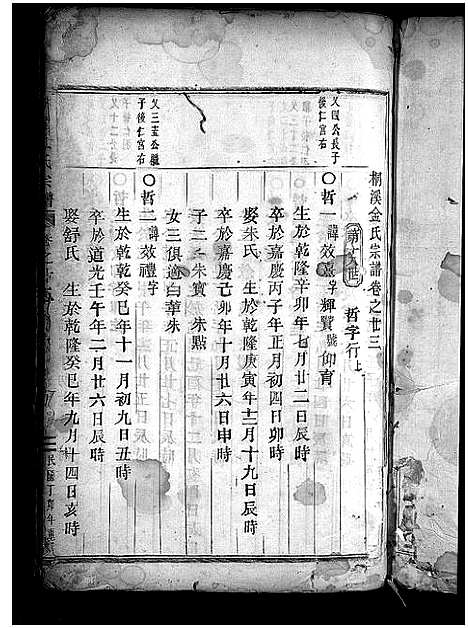 桐溪金氏宗譜卷之廿三
哲字行上
又四公長子
後仁宮右
〇哲一諱效 字輝贊號仰育
生於乾隆辛卯年七月廿二日辰時
卒於嘉慶丙子年正月初四日卯時
娶朱氏 生於乾隆庚寅年十二月十九日辰時
卒於嘉慶己卯年十月廿六日申時
子二 朱寶 朱點
女三俱適白華朱
又三 公繼
子後仁宮右
〇哲二諱效禮字
生於乾隆癸巳年十一月初九日丑時
卒於道光壬午年二月廿六日辰時
娶舒氏 生於乾隆癸巳年九月十四日亥時